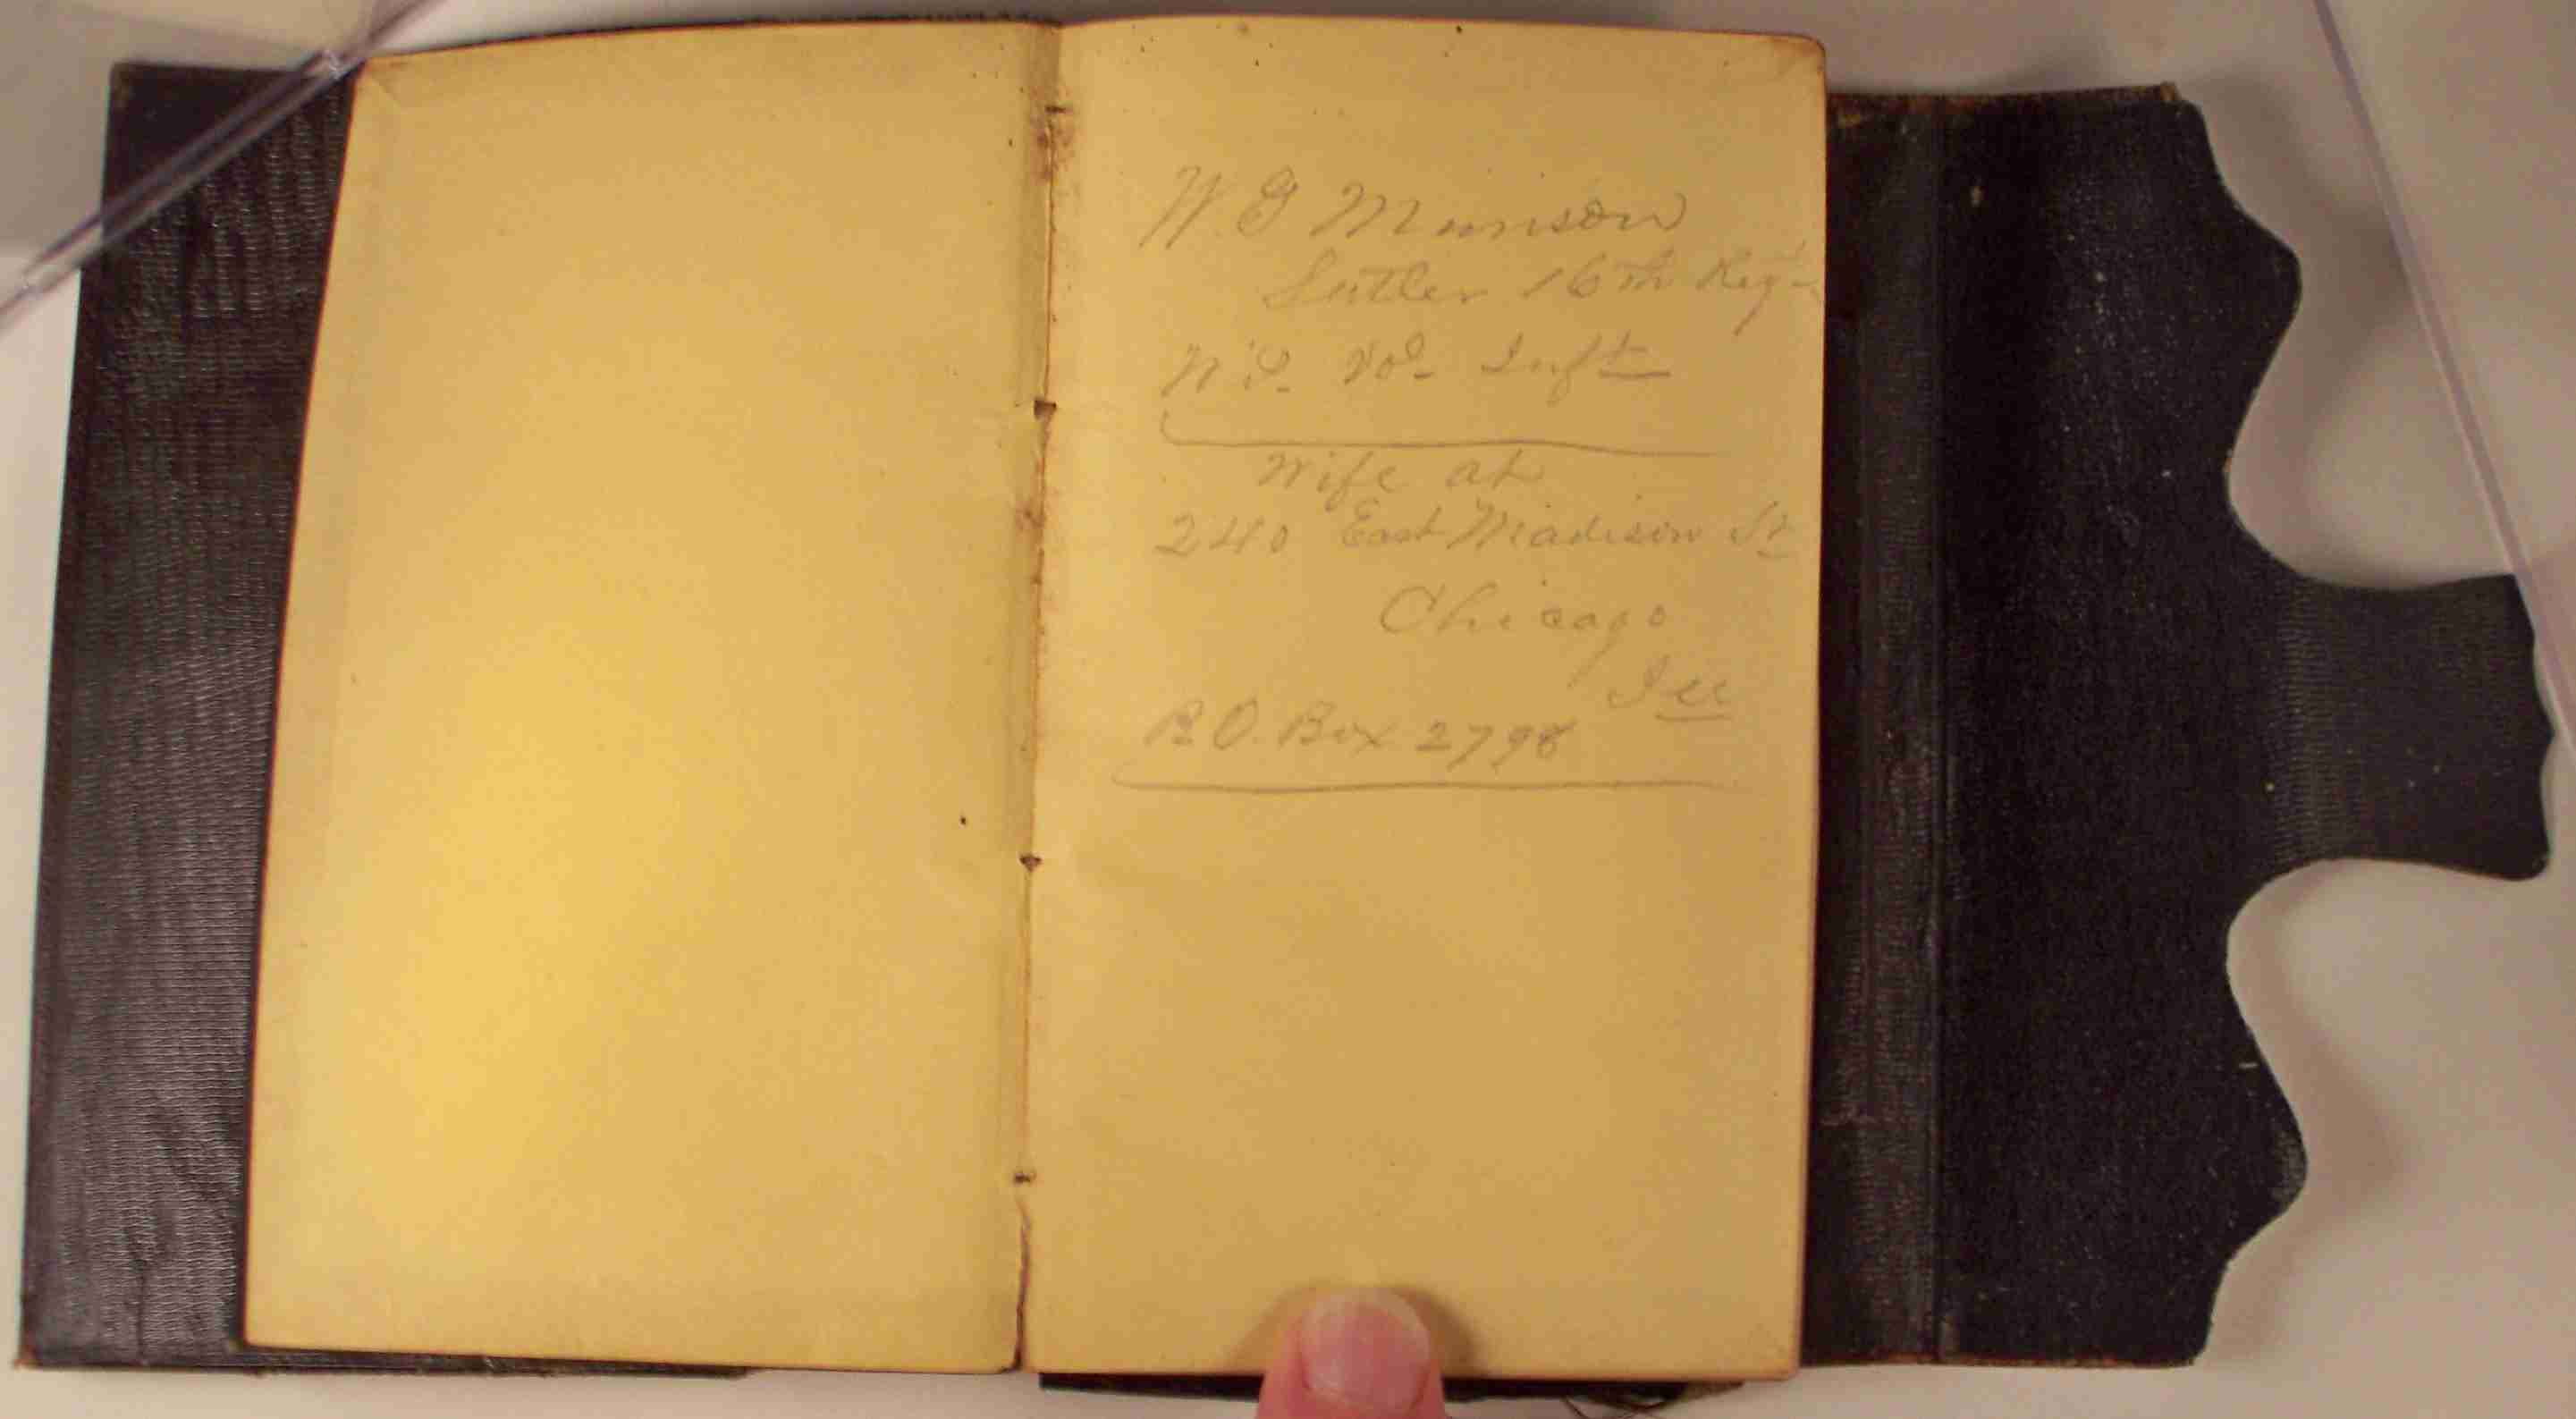 W. G Munson
Sutler 16th Regt
Vol. Inft
Wife at
240 East Madison St
Chicago
Ill
P.O. Box 2798